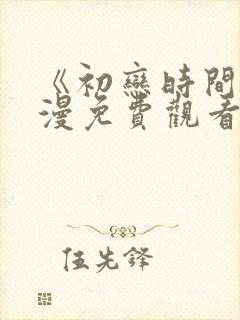 《初戀時間
漫免費觀看
伍先鋒